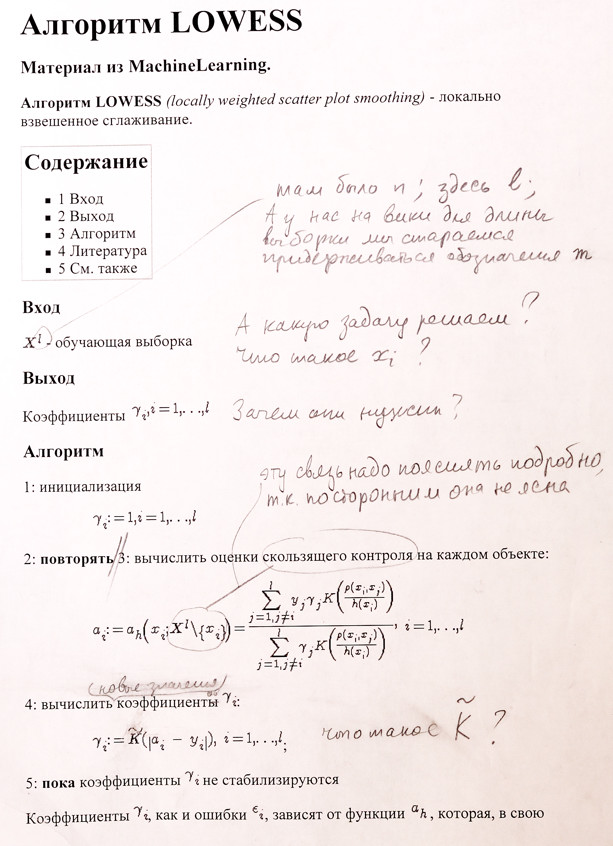 Алгоритм LOWESS
Материал из MachineLearning.
Алгоритм LOWESS (locally weighted scatter plot smoothing) - локально
взвешенное сглаживание.
Содержание
▪ 1 Вход
▪ 2 Выход
▪ 3 Алгоритм
▪ 4 Литература
▪ 5 См. также
там было n; здесь l;
А у нас на вики для длины
выборки мы стараемся
придерживаться обозначения m
Вход
X^l - обучающая выборка
А какую задачу решаем?
Что такое x_i ?
Выход
Коэффициенты γ_i, i = 1,...,l
Зачем они нужны?
Алгоритм
эту связь надо пояснять подробно,
т.к. посторонним она не ясна
1: инициализация
γ_i := 1, i = 1,...,l
2: повторять 3: вычислить оценки скользящего контроля на каждом объекте:
a_i := a_h(x_i; X^l\{x_i}) = \frac{\sum_{j=1, j≠i}^{l} y_j γ_j K(\frac{ρ(x_i, x_j)}{h(x_i)})}{\sum_{j=1, j≠i}^{l} γ_j K(\frac{ρ(x_i, x_j)}{h(x_i)})}, i = 1,...,l
(новые значения)
4: вычислить коэффициенты γ_i:
γ_i := K̃(|a_i − y_i|), i = 1,...,l;
что такое K̃ ?
5: пока коэффициенты γ_i не стабилизируются
Коэффициенты γ_i, как и ошибки ϵ_i, зависят от функции a_h, которая, в свою